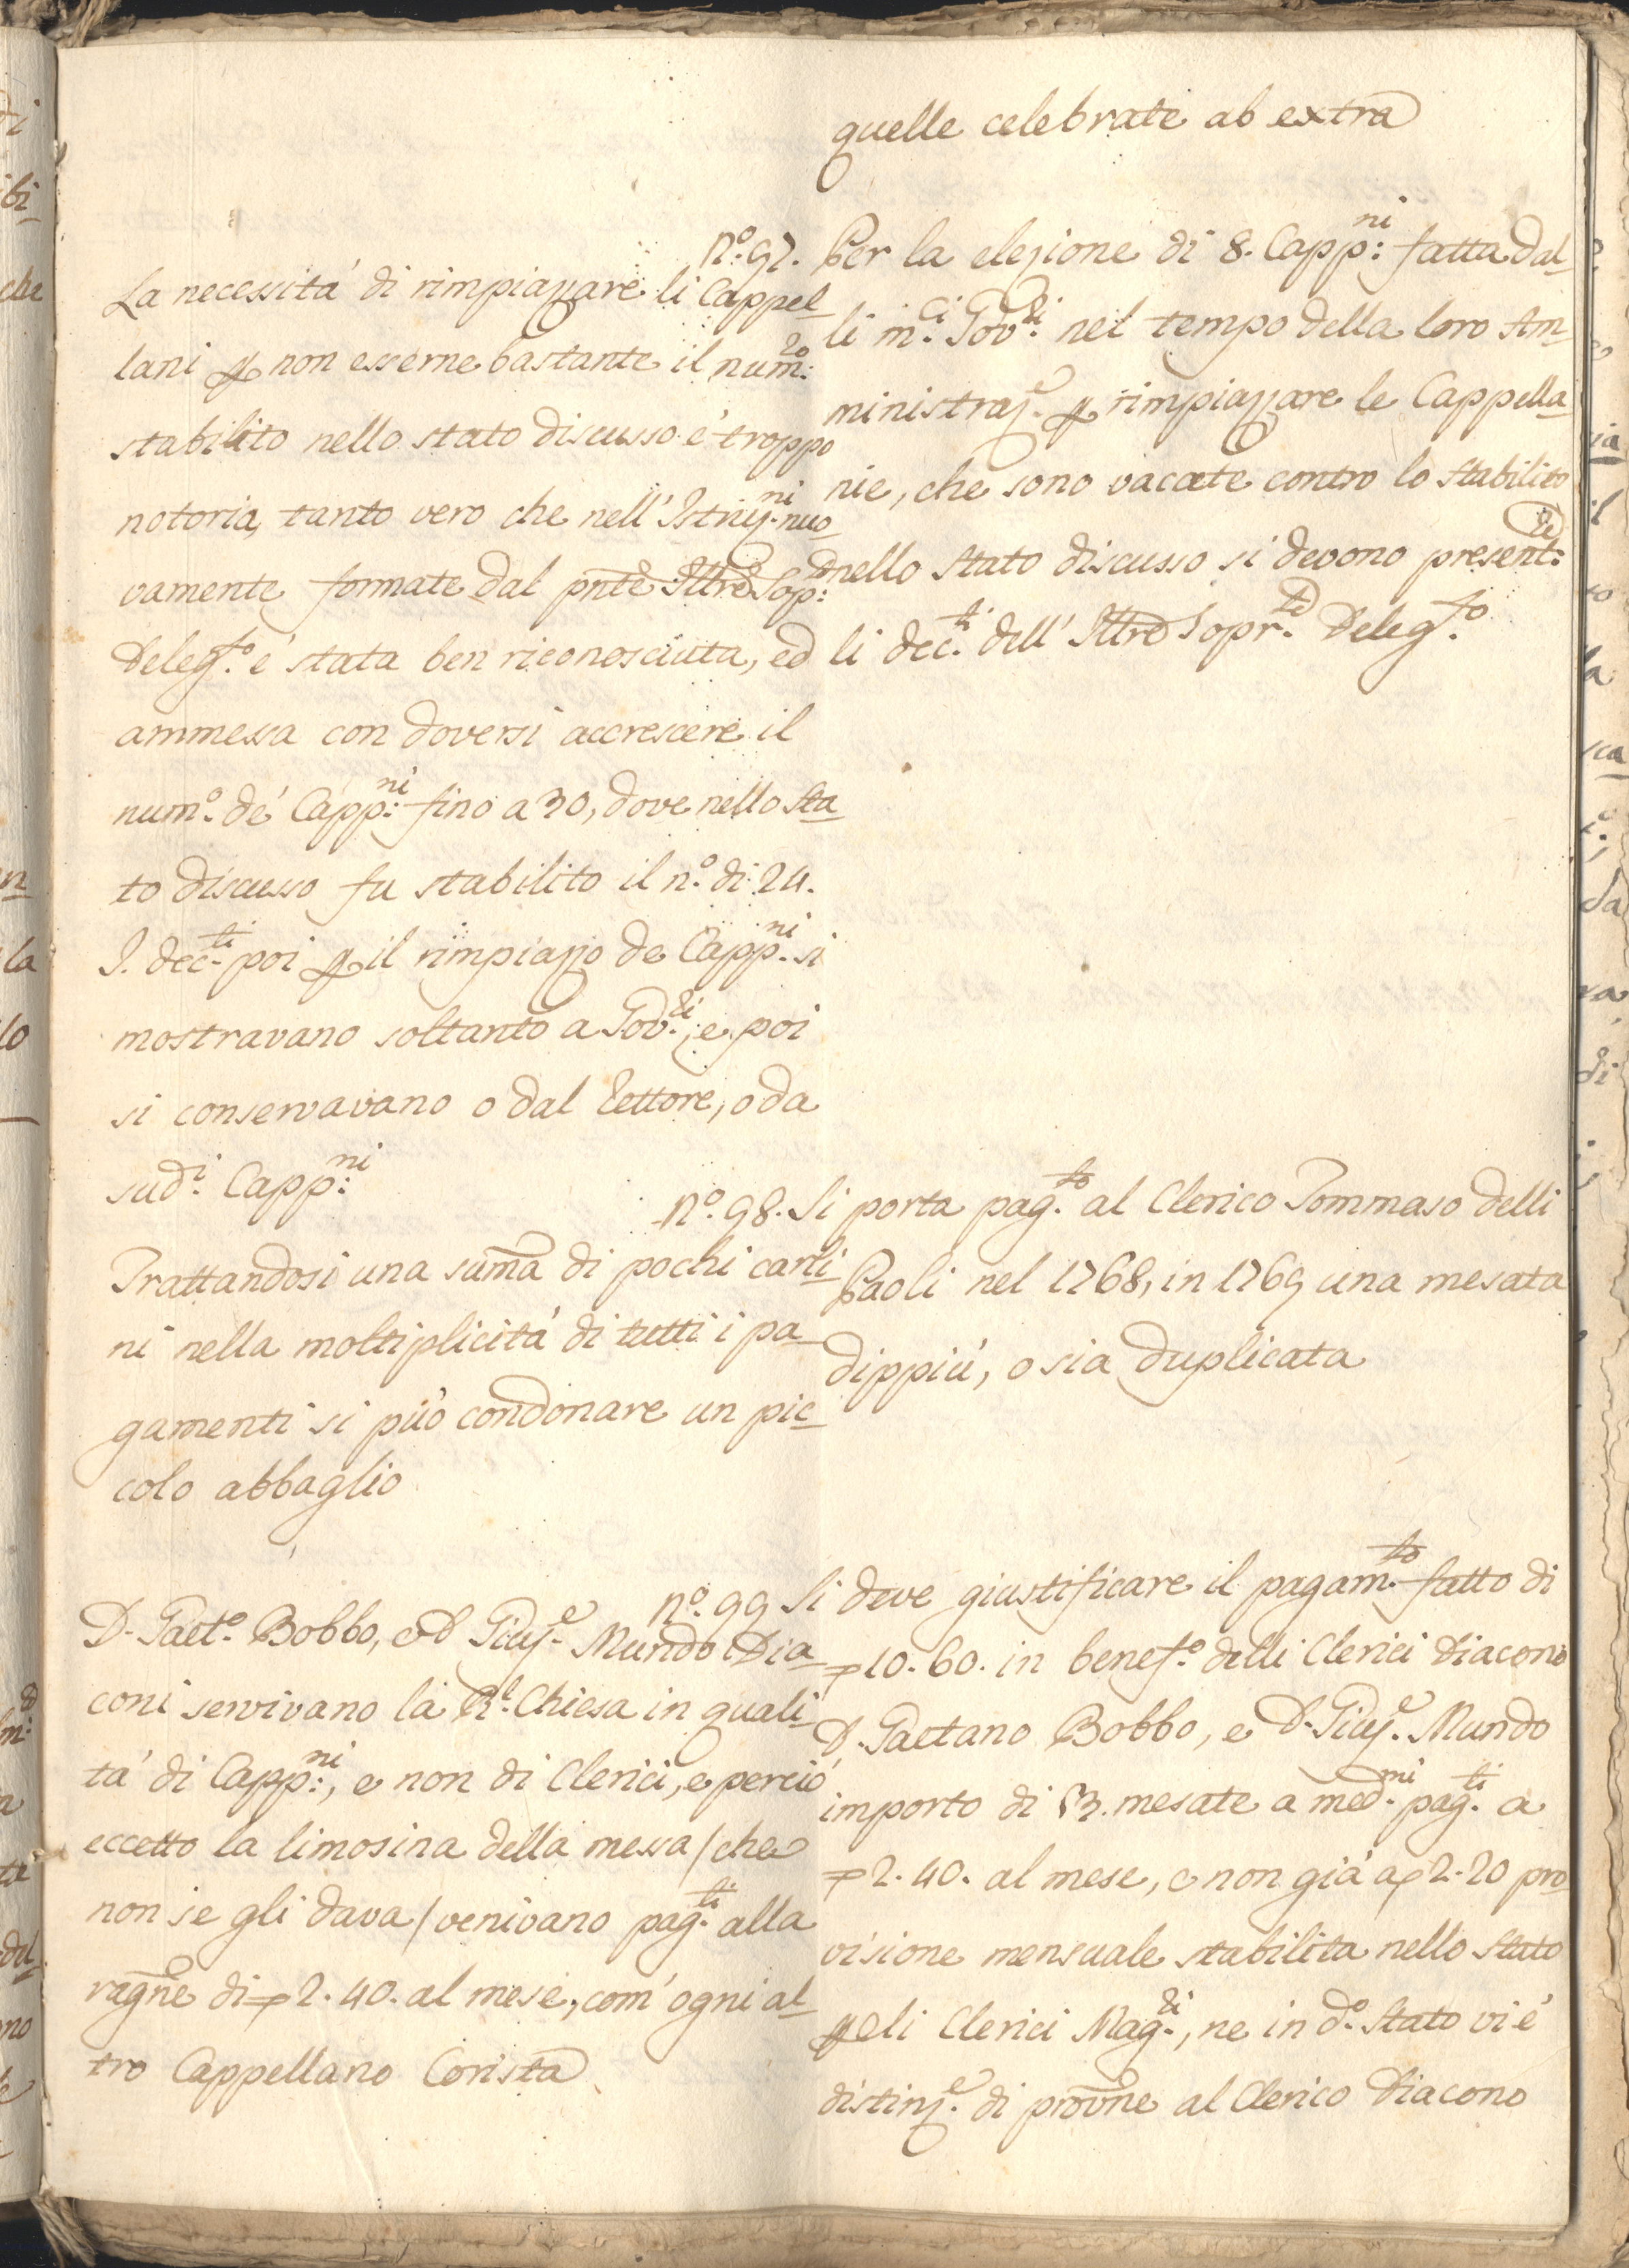 quelle celebrate ab extra
n.º 97. Per la elezione di 8. Capp:ni fatta dal-
li m.ci Gov.ri nel tempo della loro Am-
ministraz.e p rimpiazzare le Cappella-
nie, che sono vacate contro lo stabilito
nello stato discusso si devono present:re
li dec.ti dell' Iltre Sopr.te Deleg.to
La necessitá di rimpiazzare li Cappel-
lani p non esserne bastante il num:ro
stabilito nello stato discusso é troppo
notoria, tanto vero che nell' Istruz.ni nuo-
vamente formate dal pnte Iltre Sop:o
Deleg.to é stata ben riconosciuta, ed
ammessa con doversi accrescere il
num.o de' Capp:ni fino a 30, dove nello sta-
to discusso fu stabilito il n.º di 24.
I. dec.ti poi p il rimpiazzo de Capp.ni si
mostravano soltanto a Gov.ri, e poi
si conservavano o dal Rettore, o da
sud.i Capp:ni
n.º 98. Si porta pag.to al Clerico Tommaso delli
Paoli nel 1768, in 1769 una mesata
dippiú, o sia duplicata
Trattandosi una suma di pochi carli-
ni nella moltiplicitá di tutti i pa-
gamenti si può condonare un pic-
colo abbaglio
n.º 99 Si deve giustificare il pagam.to fatto di
10. 60. in benef.o delli Clerici Diacono
D. Gaetano Bobbo, e D. Gius.e Mundo
importo di 53. mesate a med.mi pag.ti a
2. 40. al mese, e non giá a 2. 20 pro-
visione mensuale stabilita nello stato
p li Clerici Mag.ri, ne in d.o stato vi é
distinz.e di provne al Clerico Diacono
D. Gaet.o Bobbo, e D Gius.e Mundo Dia-
coni servivano la R.l Chiesa in quali-
tá di Capp:ni, e non di Clerici, e perció
eccetto la limosina della messa / che
non se gli dava / venivano pag.ti alla
ragne di 2. 40. al mese, com' ogni al-
tro Cappellano Corista